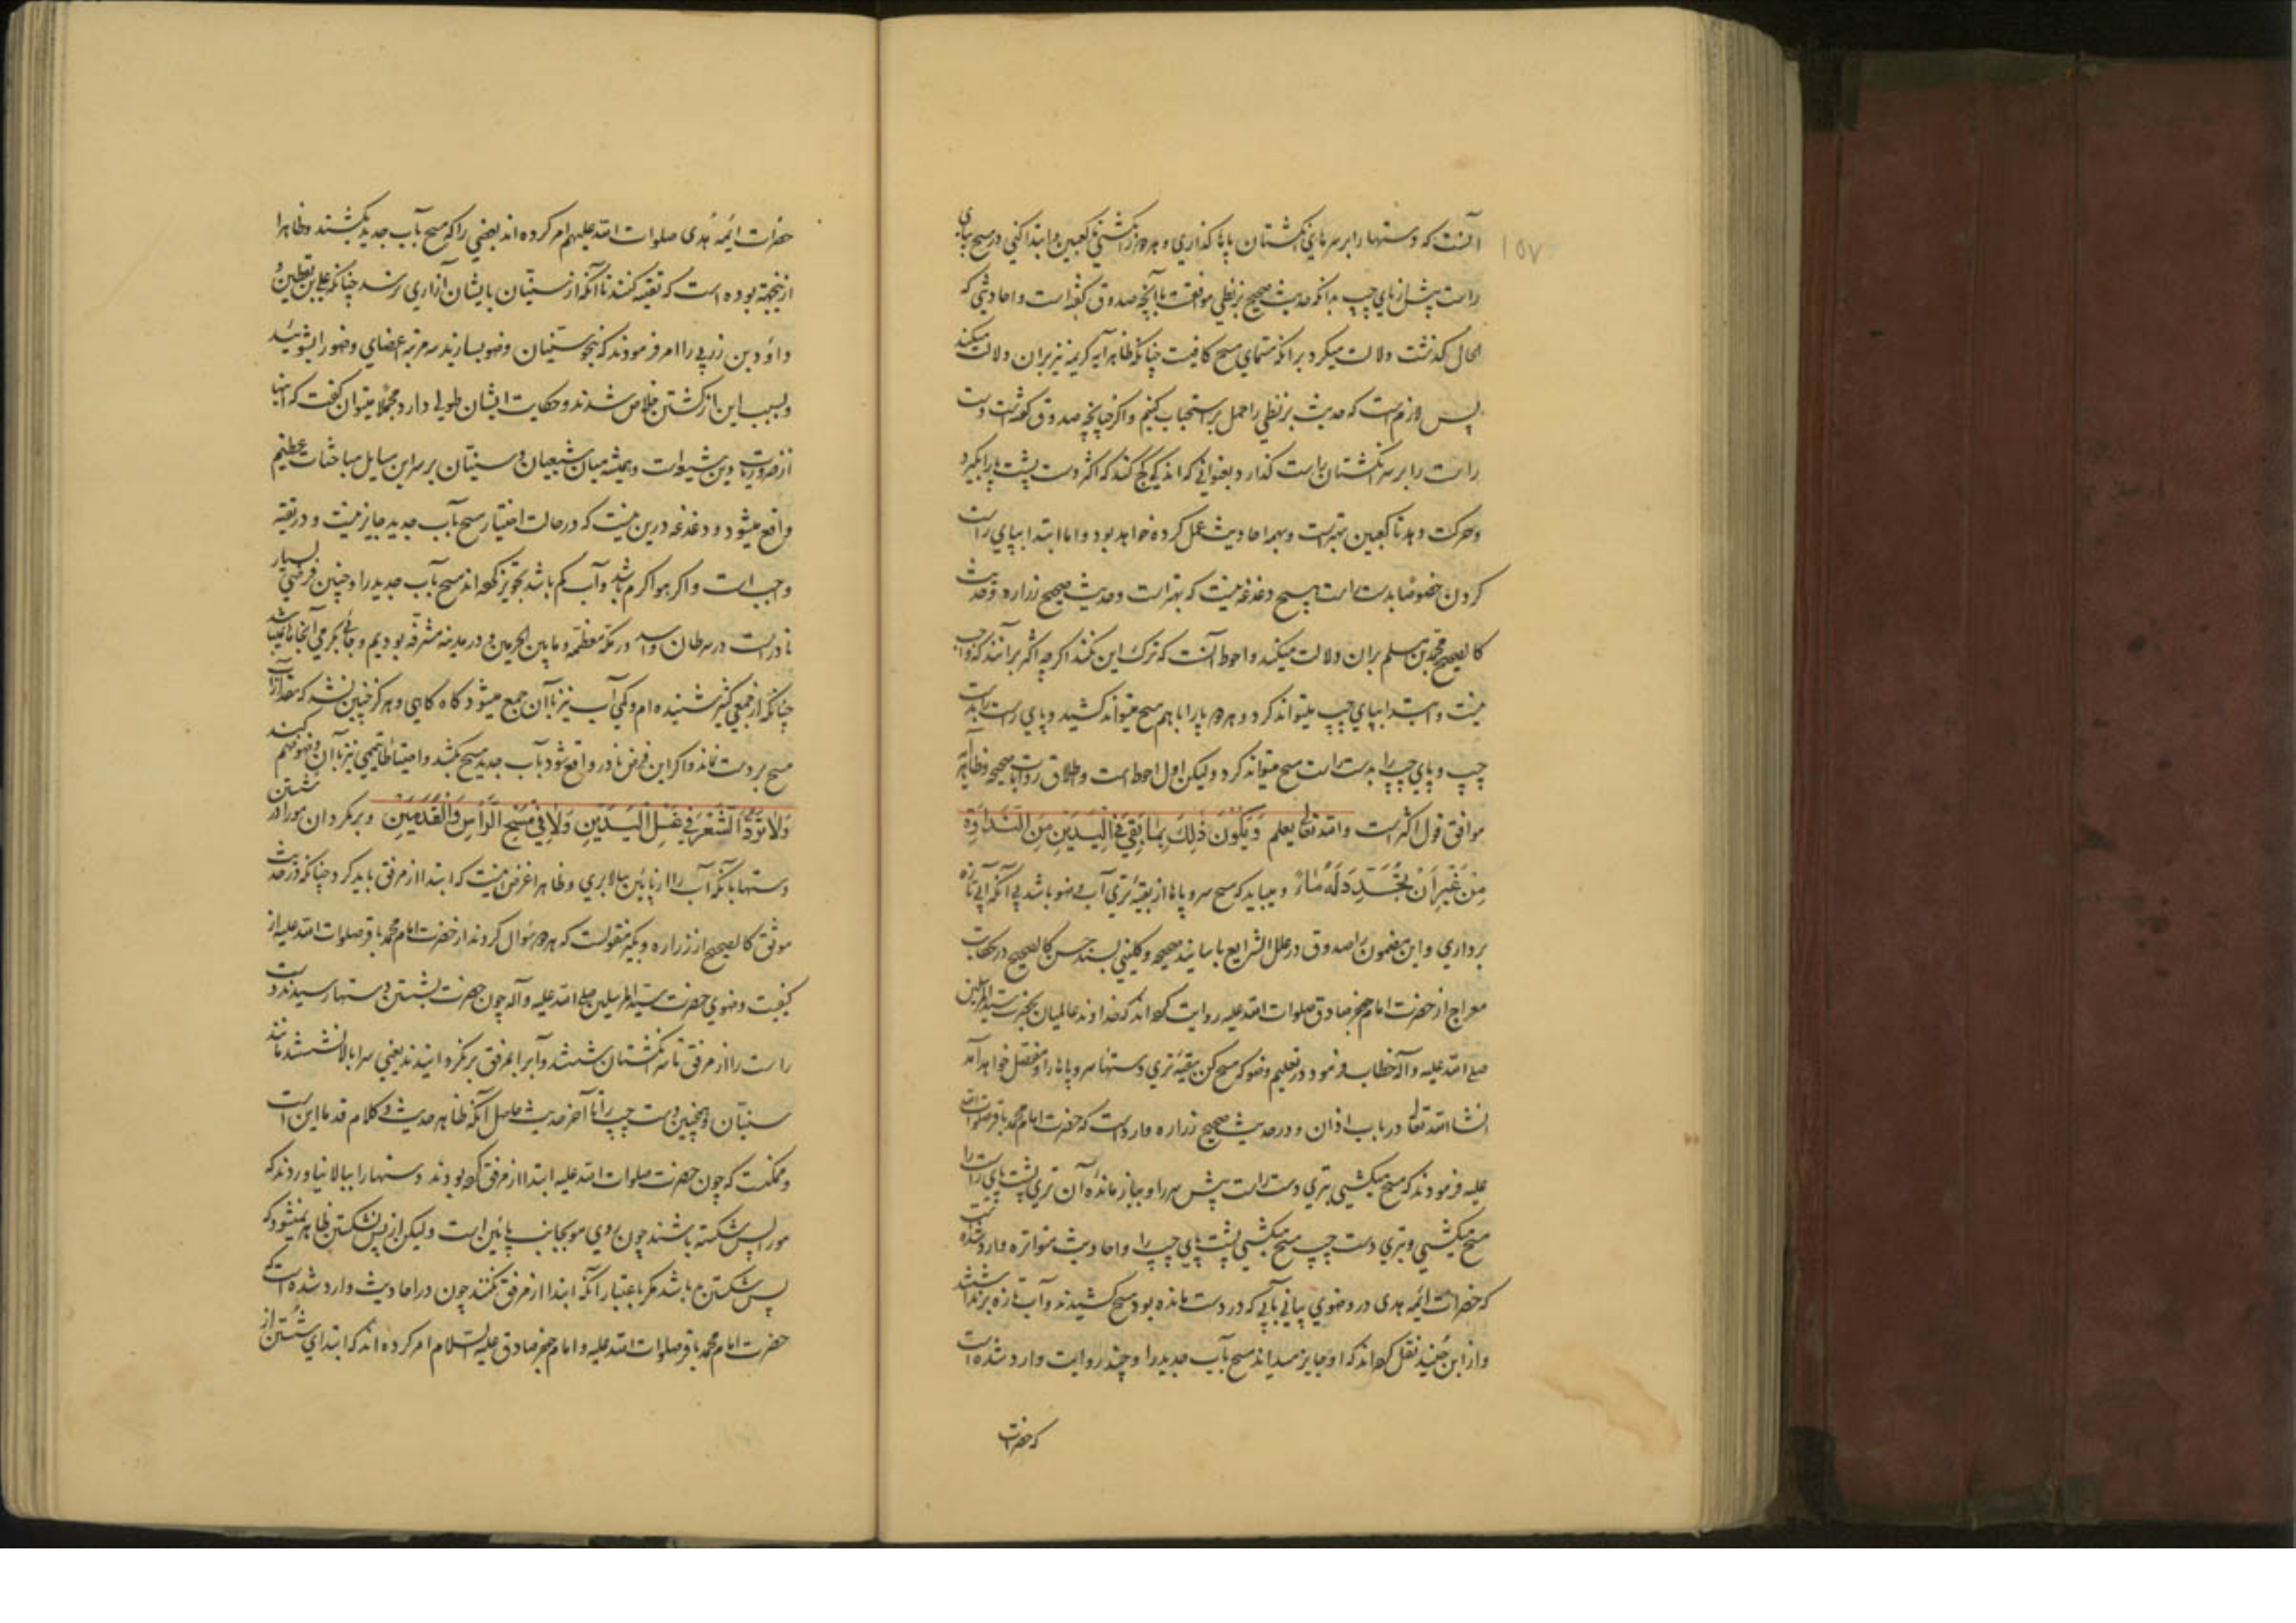 ۱۵۷
آنست که دستها را بر سرهای انکشتان پاها کذاری و هر دو را بکشی تا کعبین و ابتدا کنی در مسح بپای
راست پیش از پای چپ بدانکه حدیث صحیح بزنطی موافقست با آنچه صدوق کفته است و احادیثی که
الحال کذشت دلالت میکرد بر آنکه مسمای مسح کافیست چنانکه ظاهر آیه کریمه نیز بر آن دلالت میکند
پس لازمست که حدیث بزنطی را حمل بر استحباب کنیم و اکر چنانچه صدوق کفته است دست
راست را بر سر انکشتان راست کذارد بعنوانی که اندکی کج کند که اکثر دست پشت پا را بکیرد
و حرکت دهد تا کعبین بهترست و بهمه احادیث عمل کرده خواهد بود و اما ابتدا بپای راست
کردن خصوصا بدست راست هیچ دغدغه نیست که بهتر است و حدیث صحیح زراره و حدیث
کالصحیح محمد بن مسلم بر آن دلالت میکند و احوط آنست که ترک این نکند اکرچه اکثر برآنند که واجب
نیست و ابتدا بپای چپ میتواند کرد و هر دو پا را با هم مسح میتواند کشید و پای راست را بدست
چپ و پای چپ را بدست راست مسح میتواند کرد و لیکن اول احوط است و اطلاق روایات صحیحه و ظاهر آیه
موافق قول اکثرست و الله تعالی یعلم وَیَکُونَ ذٰلِکَ بِمٰا بَقِیَ فِی الْیَدَیْنِ مِنَ النَّدٰاوَةِ
مِنْ غَیْرِ اَنْ یُجَدِّدَ لَهُ مٰاءً و میباید که مسح سر و پاها از بقیه تری آب وضو باشد بی آنکه آبی تازه
برداری و این مضمون را صدوق در علل الشرایع باسانید صحیحه و کلینی بسند حسن کالصحیح در حکایت
معراج از حضرت امام جعفر صادق صلوات الله علیه روایت کرده اند که خداوند عالمیان بحضرت سید المرسلین
صلی الله علیه و آله خطاب فرمود در تعلیم وضو که مسح کن ببقیه تری دستها سر و پاها را و مفصل خواهد آمد
انشا الله تعالی در باب اذان و در حدیث صحیح زراره وارد است که حضرت امام محمد باقر صلوات الله
علیه فرمودند که مسح میکشی بتری دست راست پیش سر را و بباز مانده آن تری پشت پای راست را
مسح میکشی و بتری دست چپ مسح میکشی پشت پای چپ را و احادیث متواتره وارد شده است
که حضرات ائمه هدی در وضوی بیانی بآبی که در دست مانده بود مسح کشیدند و آب تازه برنداشتند
و از ابن جنید نقل کرده اند که او جایز میداند مسح بآب جدید را و چند روایت وارد شده است
که حضرات
حضرات ائمه هدی صلوات الله علیهم امر کرده اند بعضی را که مسح بآب جدید بکشند و ظاهرا
از اینجهة بوده است که تقیه کنند تا آنکه از سنیان بایشان آزاری نرسد چنانکه علی بن یقطین و
داود بن زربی را امر فرمودند که بنحو سنیان وضو بسازند سه مرتبه اعضای وضو را بشویند
و بسبب این از کشتن خلاص شدند و حکایت ایشان طولی دارد مجملا میتوان کفت که اینها
از ضروریات دین شیعه است و همیشه میان شیعیان و سنیان بر سر این مسایل مباحثات عظیم
واقع میشود و دغدغه درین نیست که در حالت اختیار مسح بآب جدید جایز نیست و در تقیه
واجب است و اکر هوا کرم باشد و آب کم باشد تجویز کرده اند مسح بآب جدید را و چنین فرضی بسیار
نادر است در سرطان و اسد در مکه معظمه و ما بین الحرمین و در مدینه مشرفه بودیم و جائی بکرمی آنجاها نمیباشد
چنانکه از جمعی کثیر شنیده ام و کمی آب نیز با آن جمع میشود کاه کاهی و هرکز چنین نشد که مقدار آب
مسح بر دست نماند و اکر این فرض نادر واقع شود بآب جدید مسح بکشد و احتیاطا تیممی نیز با آن وضو ضم کنند
وَلٰا تَرُدَّ الشَّعْرَ فی غَسْلِ الْیَدَیْنِ وَلٰا فی مَسْحِ الرَّأْسِ وَالْقَدَمَیْنِ و برمکردان مو را در شستن
دستها بآنکه آب را از پائین ببالا بری و ظاهرا غرض اینست که ابتدا از مرفق باید کرد چنانکه در حدیث
موثق کالصحیح از زراره و بکیر منقولست که هر دو سؤال کردند از حضرت امام محمد باقر صلوات الله علیه از
کیفیت وضوی حضرت سید المرسلین صلی الله علیه و آله چون حضرت بشستن دستها رسیدند دست
راست را از مرفق تا سر انکشتان شستند و آب را بمرفق برنکردانیدند یعنی سر ابالا نشستند مانند
سنیان و همچنین دست چپ را تا آخر حدیث حاصل آنکه ظاهر حدیث و کلام قدما این است
و ممکنست که چون حضرت صلوات الله علیه ابتدا از مرفق کرده بودند دستها را ببالا نیاوردند که
مو را پس شکسته باشند چون روی مو بجانب پائین است و لیکن از پس نشکستن ظاهر نمیشود که
پس شکستن بد باشد مکر باعتبار آنکه ابتدا از مرفق نکنند چون در احادیث وارد شده است که
حضرت امام محمد باقر صلوات الله علیه و امام جعفر صادق علیه السلام امر کرده اند که ابتدای شستن از